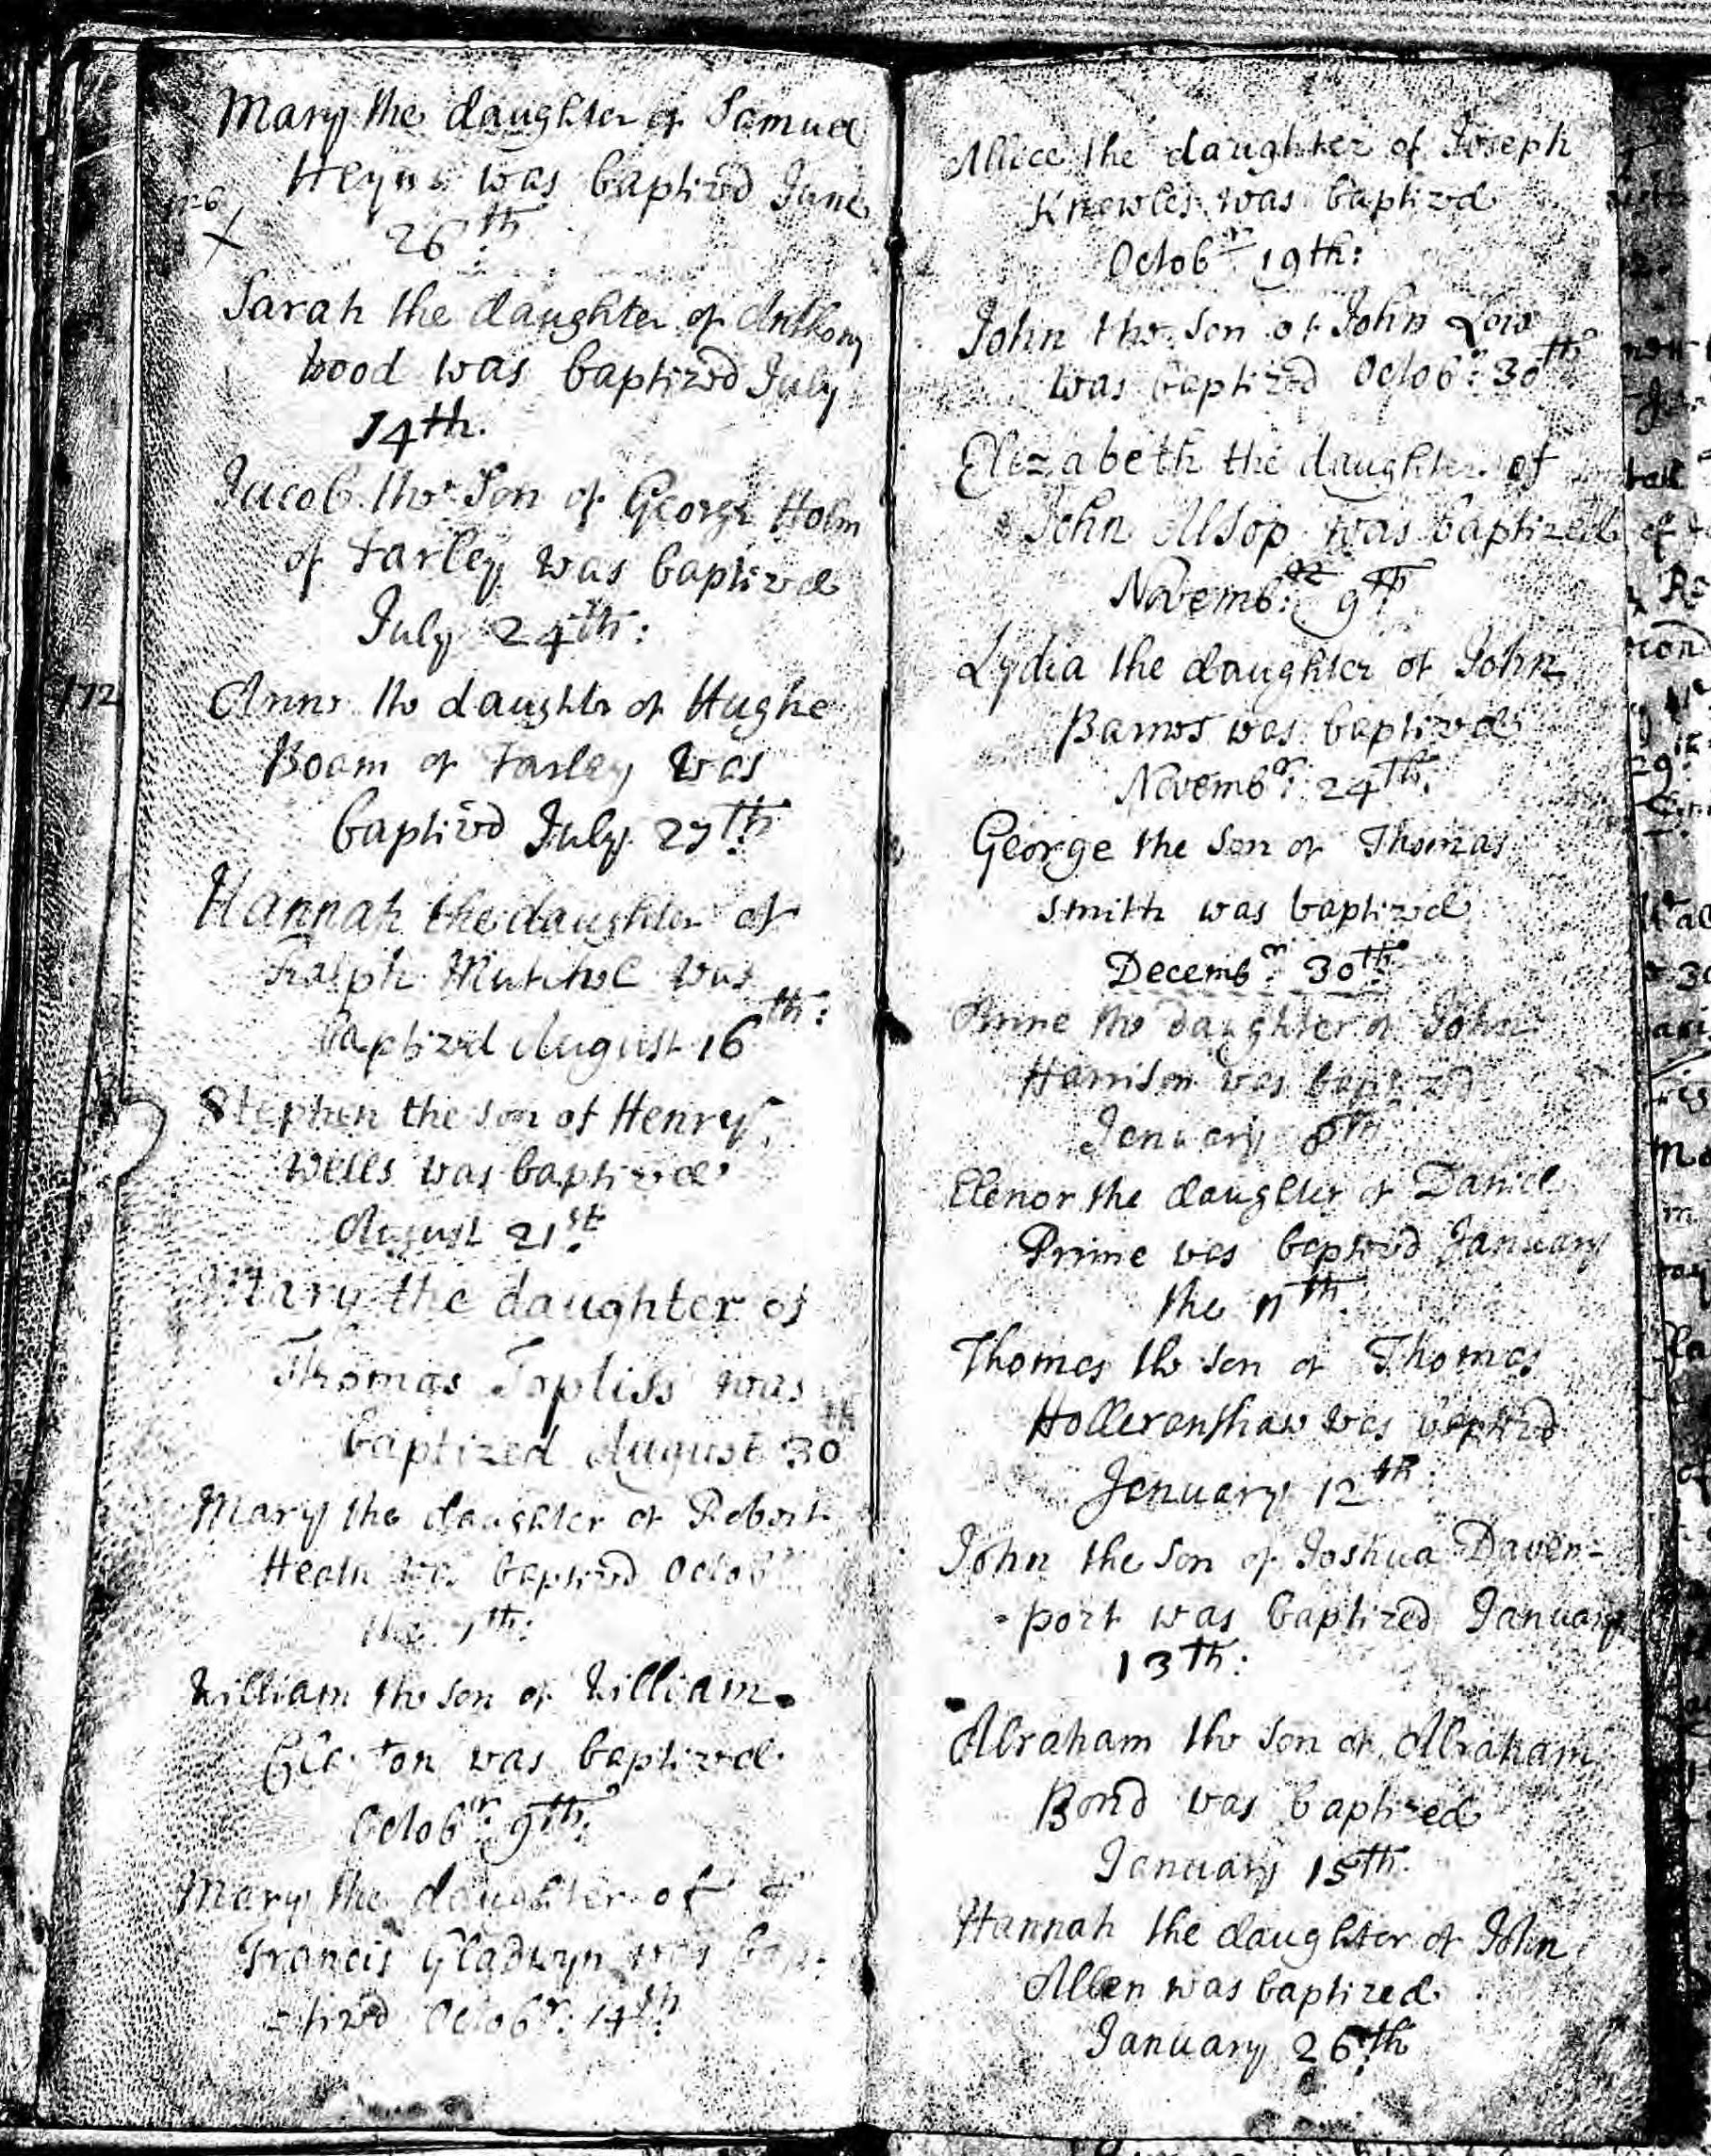 Mary the daughter of Samuel
Heyns was baptizd June
1726
26th
Sarah the daughter of Anthony
Wood was baptizd July
14th.
Jacob the Son of George Holm
of Farley was baptizd
July 24th:
172
Anne the daughter of Hughe
Boam of Farley was
baptizd July 27th
Hannah the daughter of
Ralph was
baptizd August 16th:
Stephen the son of Henry
Wells was baptized
August 21st
Mary the daughter of
Thomas Topliss was
baptized August 30th
Mary the daughter of Robert
Heath was baptizd Octobr
the 7th:
William the son of William
was baptized
Octobr: 9th:
Mary the daughter of
Francis Gladwyn was bap-
-tizd Octobr: 14th
Allice the daughter of Joseph
Knowles was baptizd
Octobr 19th:
John the Son of John Low
was baptizd Octobr: 30th
Elizabeth the daughter of
John Alsop was baptized
Novembr: 9th
Lydia the daughter of John
Barnes was baptized
Novembr: 24th:
George the Son of Thomas
Smith was baptized
Decembr: 30th
Anne the daughter of John
Harrison was baptizd
January 8th
Elenor the daughter of Daniel
Prime was baptizd January
the 11th
Thomas the Son of Thomas
Hollerenshaw was baptizd
January 12th
John the Son of Joshua Daven-
-port was baptized January
13th:
Abraham the Son of Abraham
Bond was baptized
January 15th
Hannah the daughter of John
Allen was baptized
January 26th